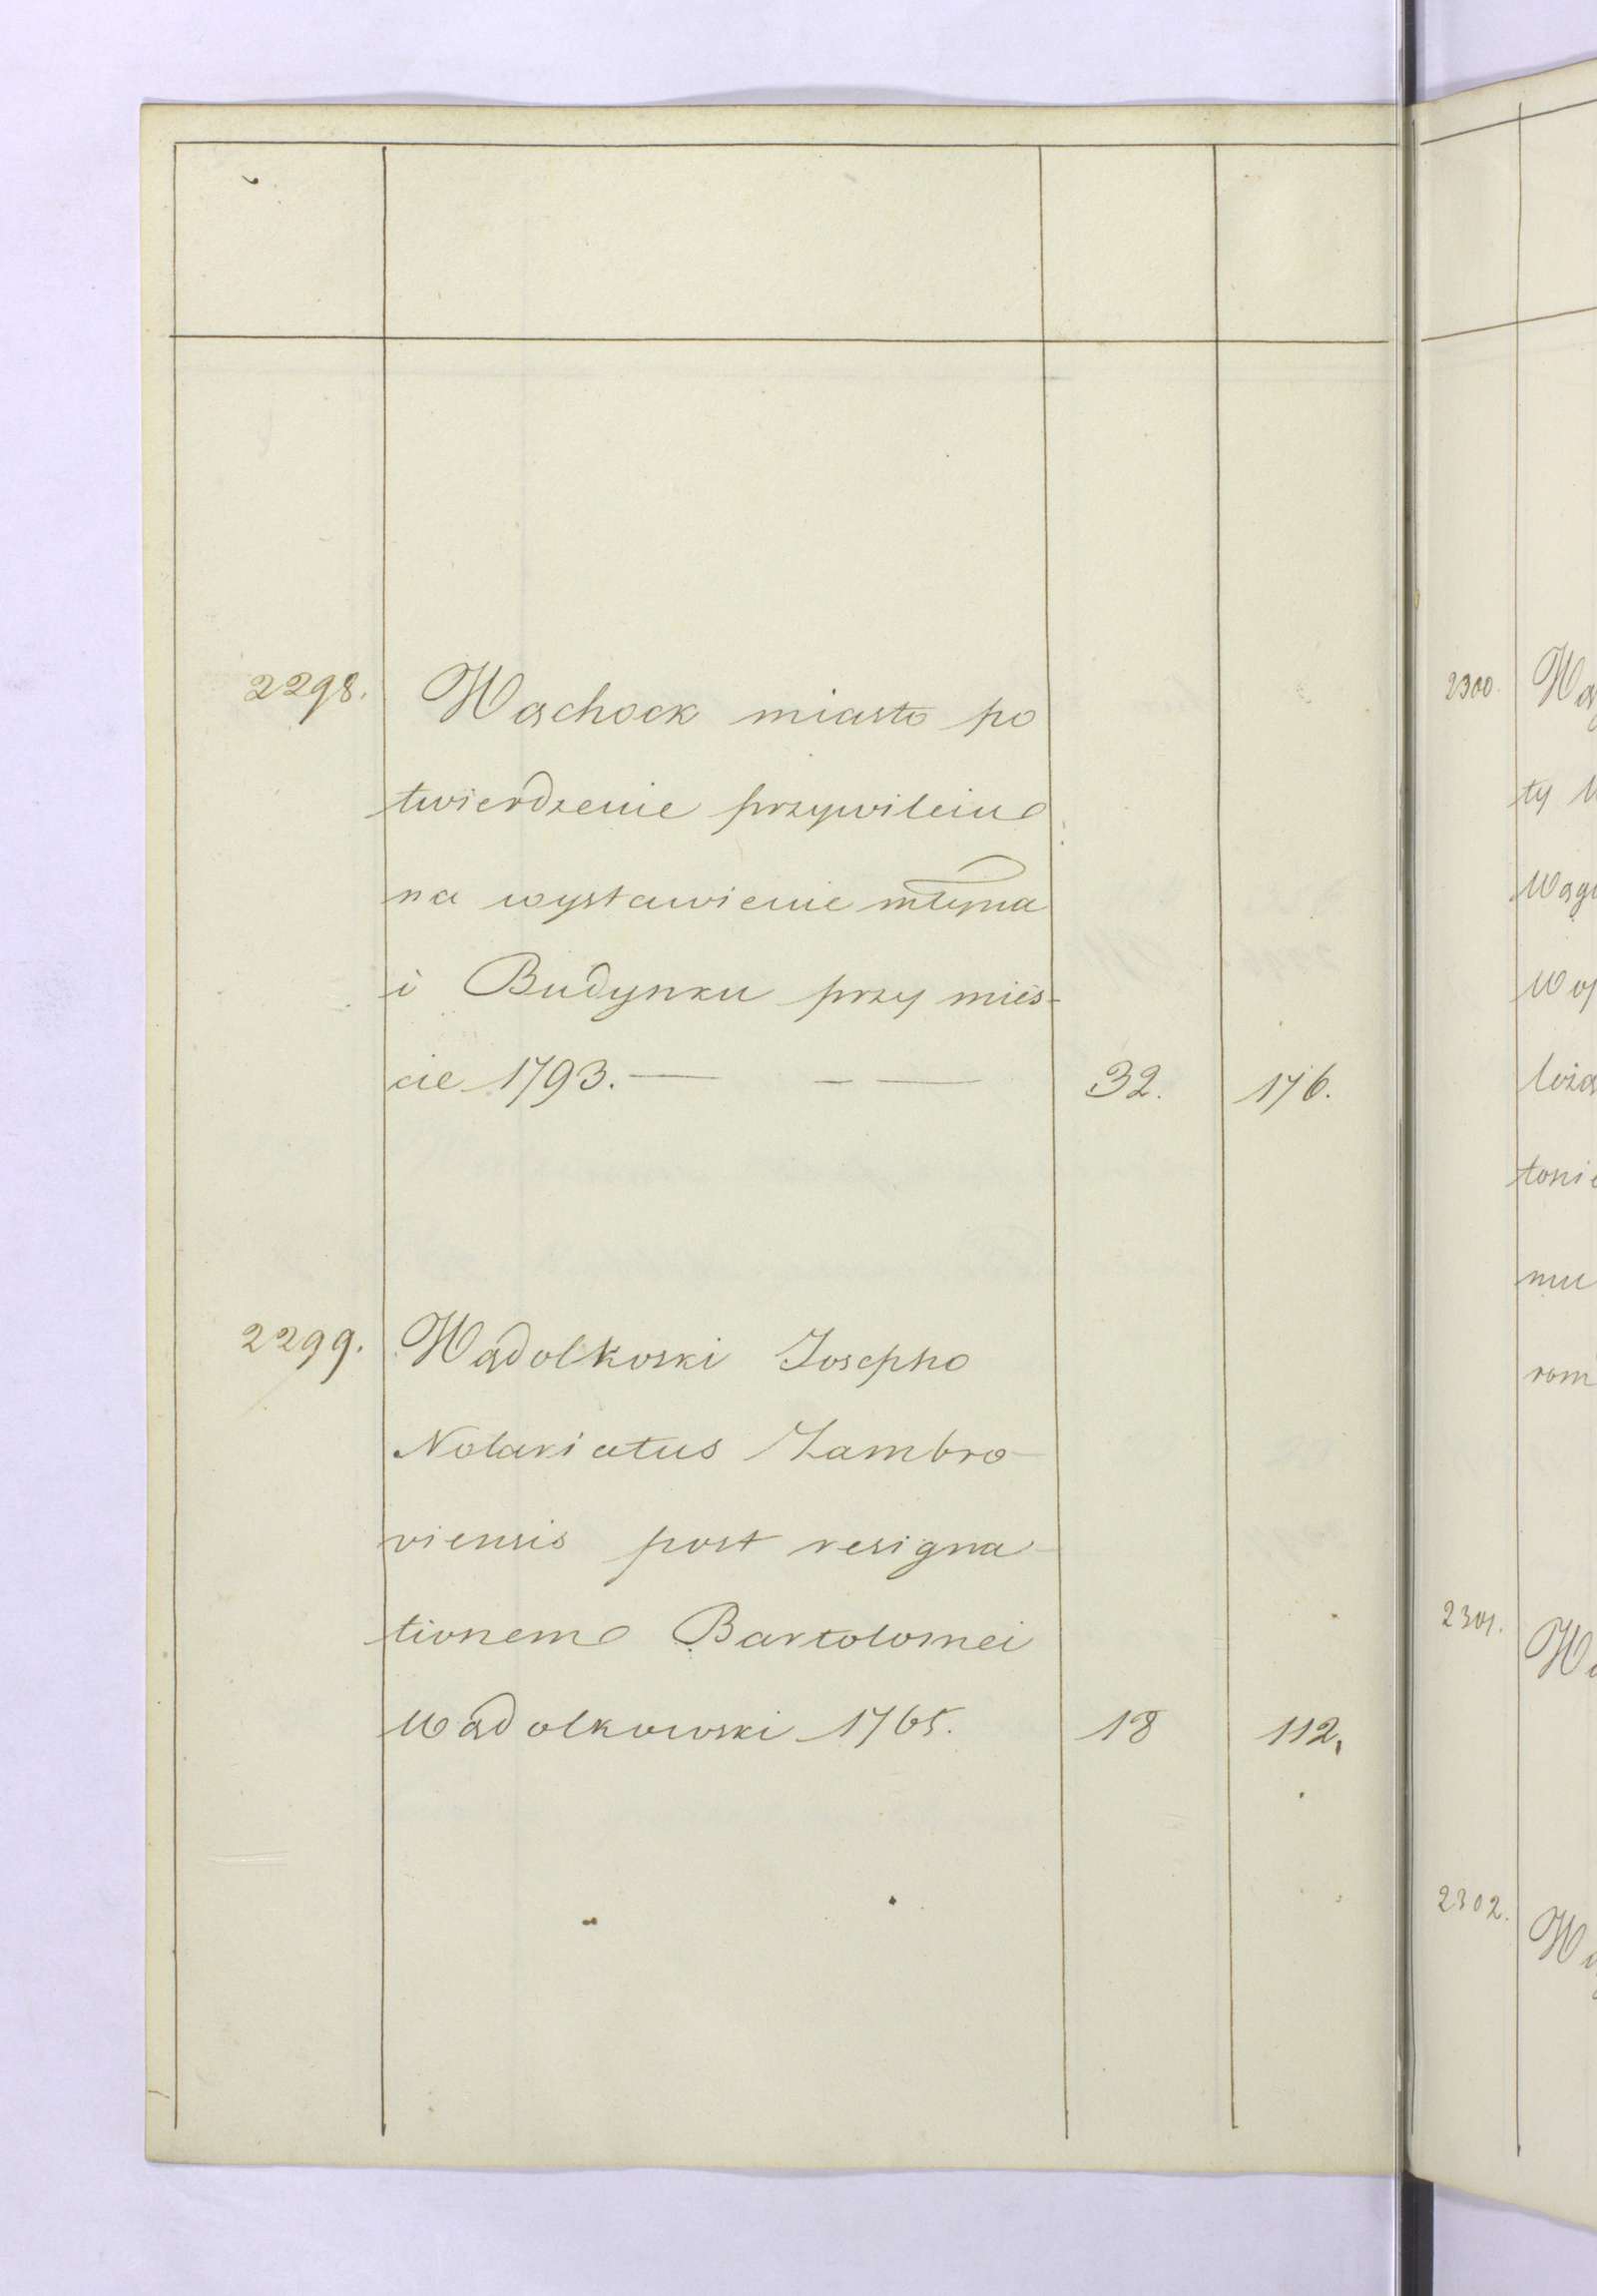 2298. Wąchock miasto po
twierdzenie przywileiu
na wystawienie młyna
i Budynku przy mieś-
cie 1793. — — — 32. 176.
2299. Wądolkoski Josepho
Notariatus Zambro-
viensis post resigna-
tionem Bartolomei
Wądolkowski 1765. 18 112.
2300.
ty
tonie
rom
2301.
2302.